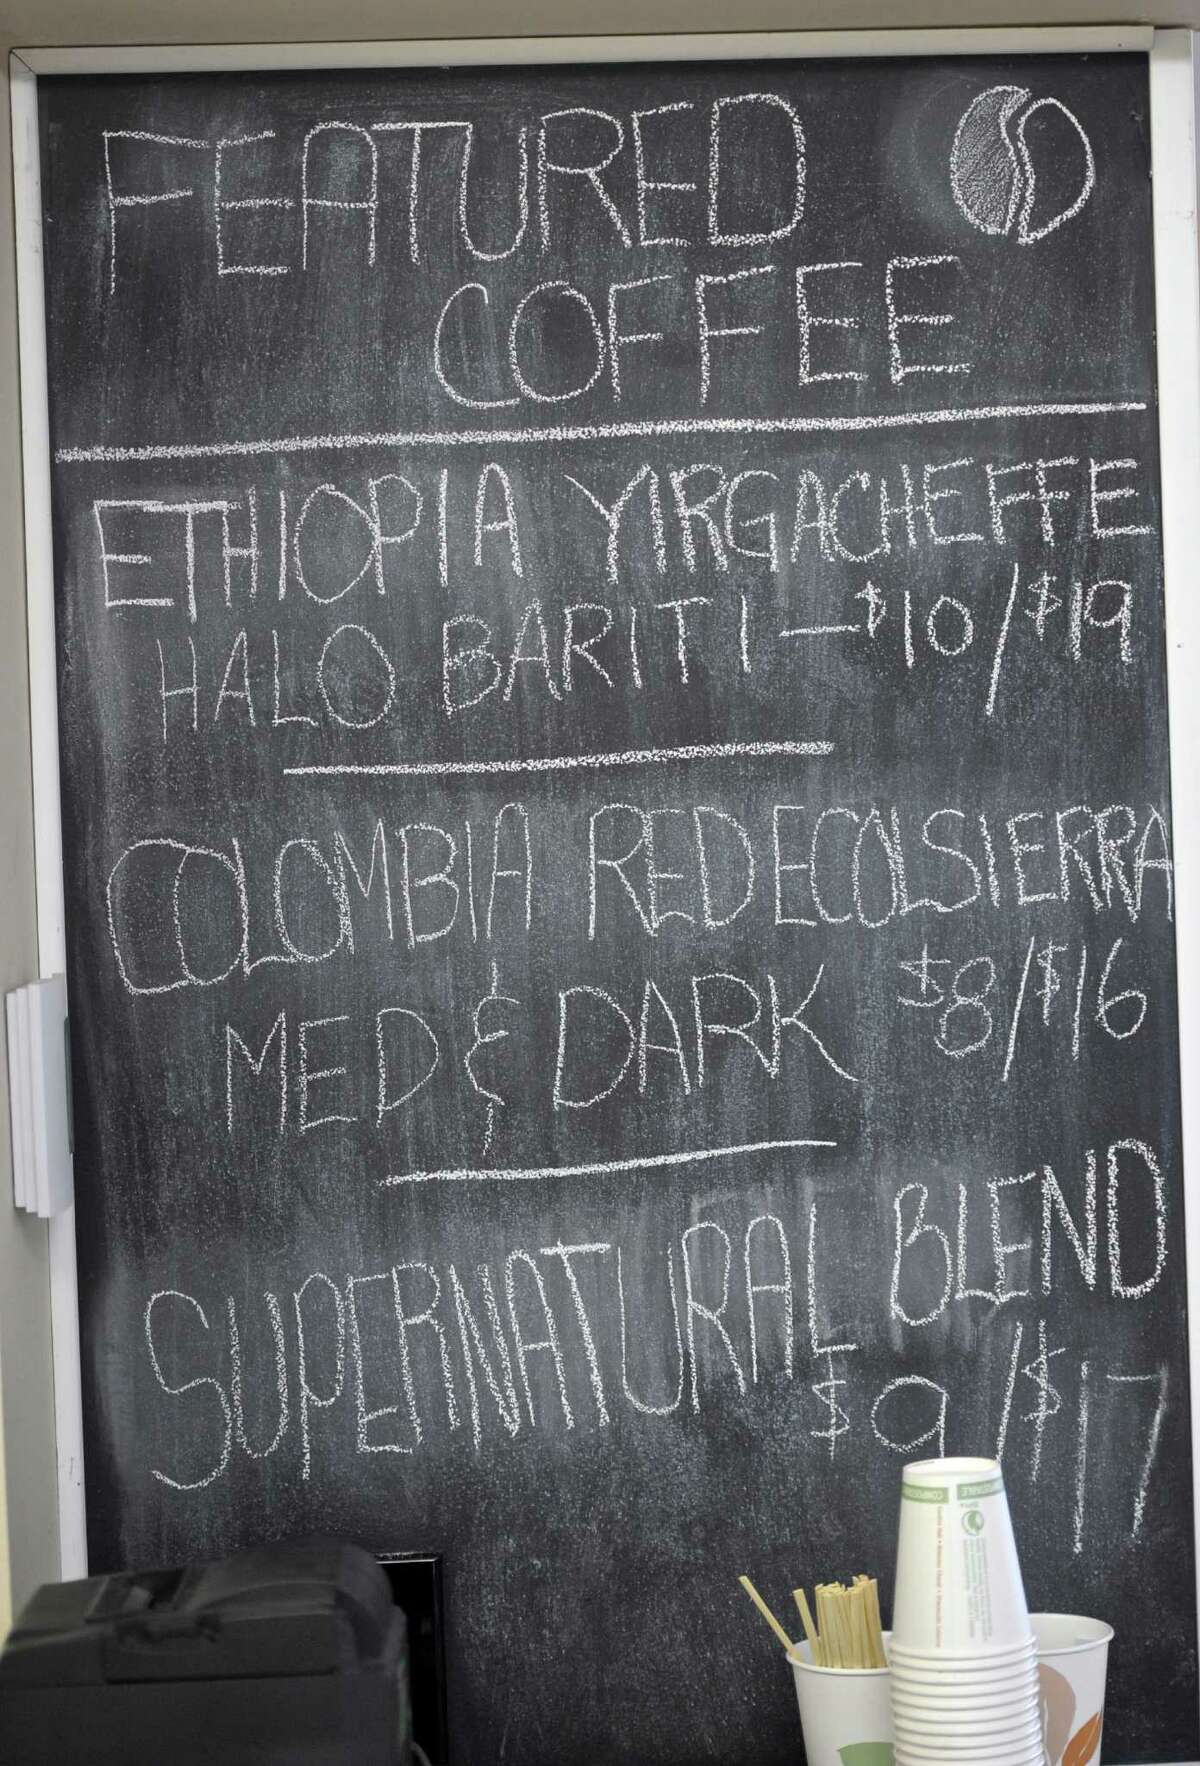 FEATURED
COFFEE
ETHIOPIA YIRGACHEFFE
HALO BARITI — $10/$19
COLOMBIA RED ECOLSIERRA
MED & DARK $8/$16
SUPERNATURAL BLEND
$9/$17
COMPOSTABLE